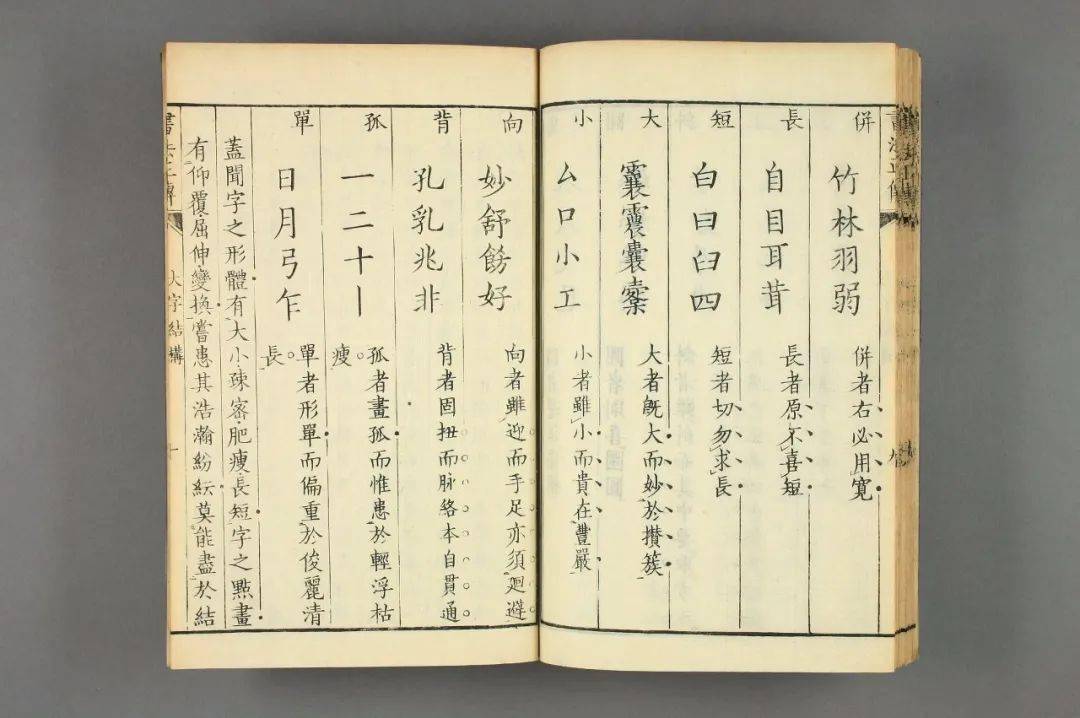 併 竹林羽弱 併者右必用寬
長 自目耳茸 長者原不喜短
短 白曰臼四 短者切勿求長
大 囊 大者旣大而妙於攅簇
小 厶口小工 小者雖小而貴在豐嚴
向 妙舒餝好 向者雖迎而手足亦須迴避
背 孔乳兆非 背者固扭而脉絡本自貫通
孤 一二十丨 孤者畫孤而惟患於輕浮枯
瘦
單 日月弓乍 單者形單而偏重於俊麗清
長
蓋聞字之形體有大小踈密肥瘦長短字之㸃畫
有仰覆屈伸變換嘗患其浩瀚紛紜莫能盡於結
書法正傳 大字結構 十